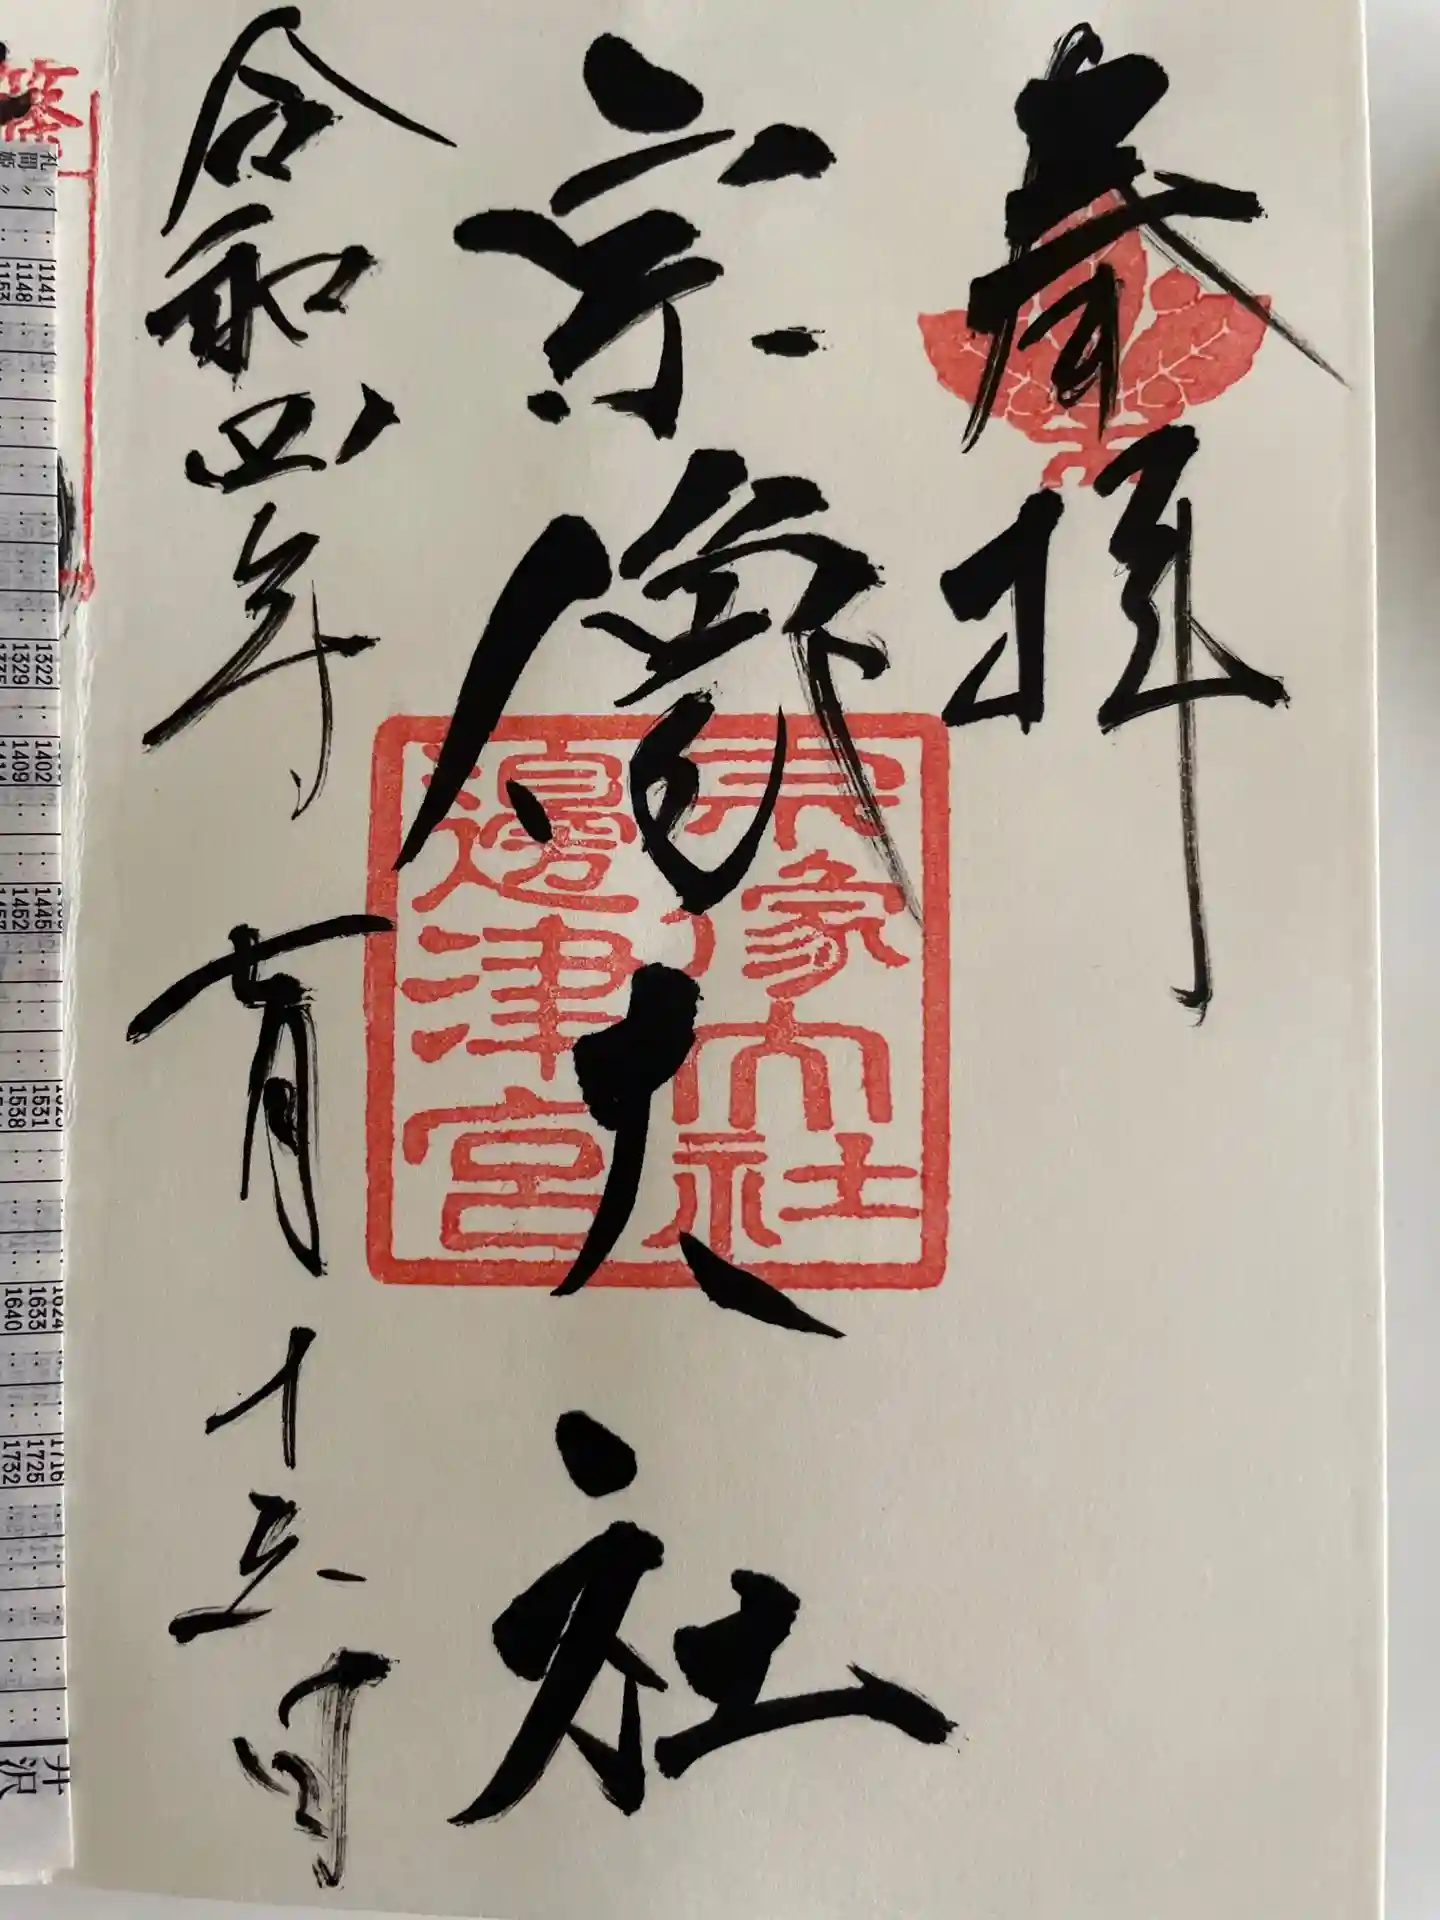 奉拝
宗像大社
宗像大社
邊津宮
令和四年七月十五日
1141 1322 1402 1445 1531 1633 1725
1148 1329 1409 1452 1538 1640 1732